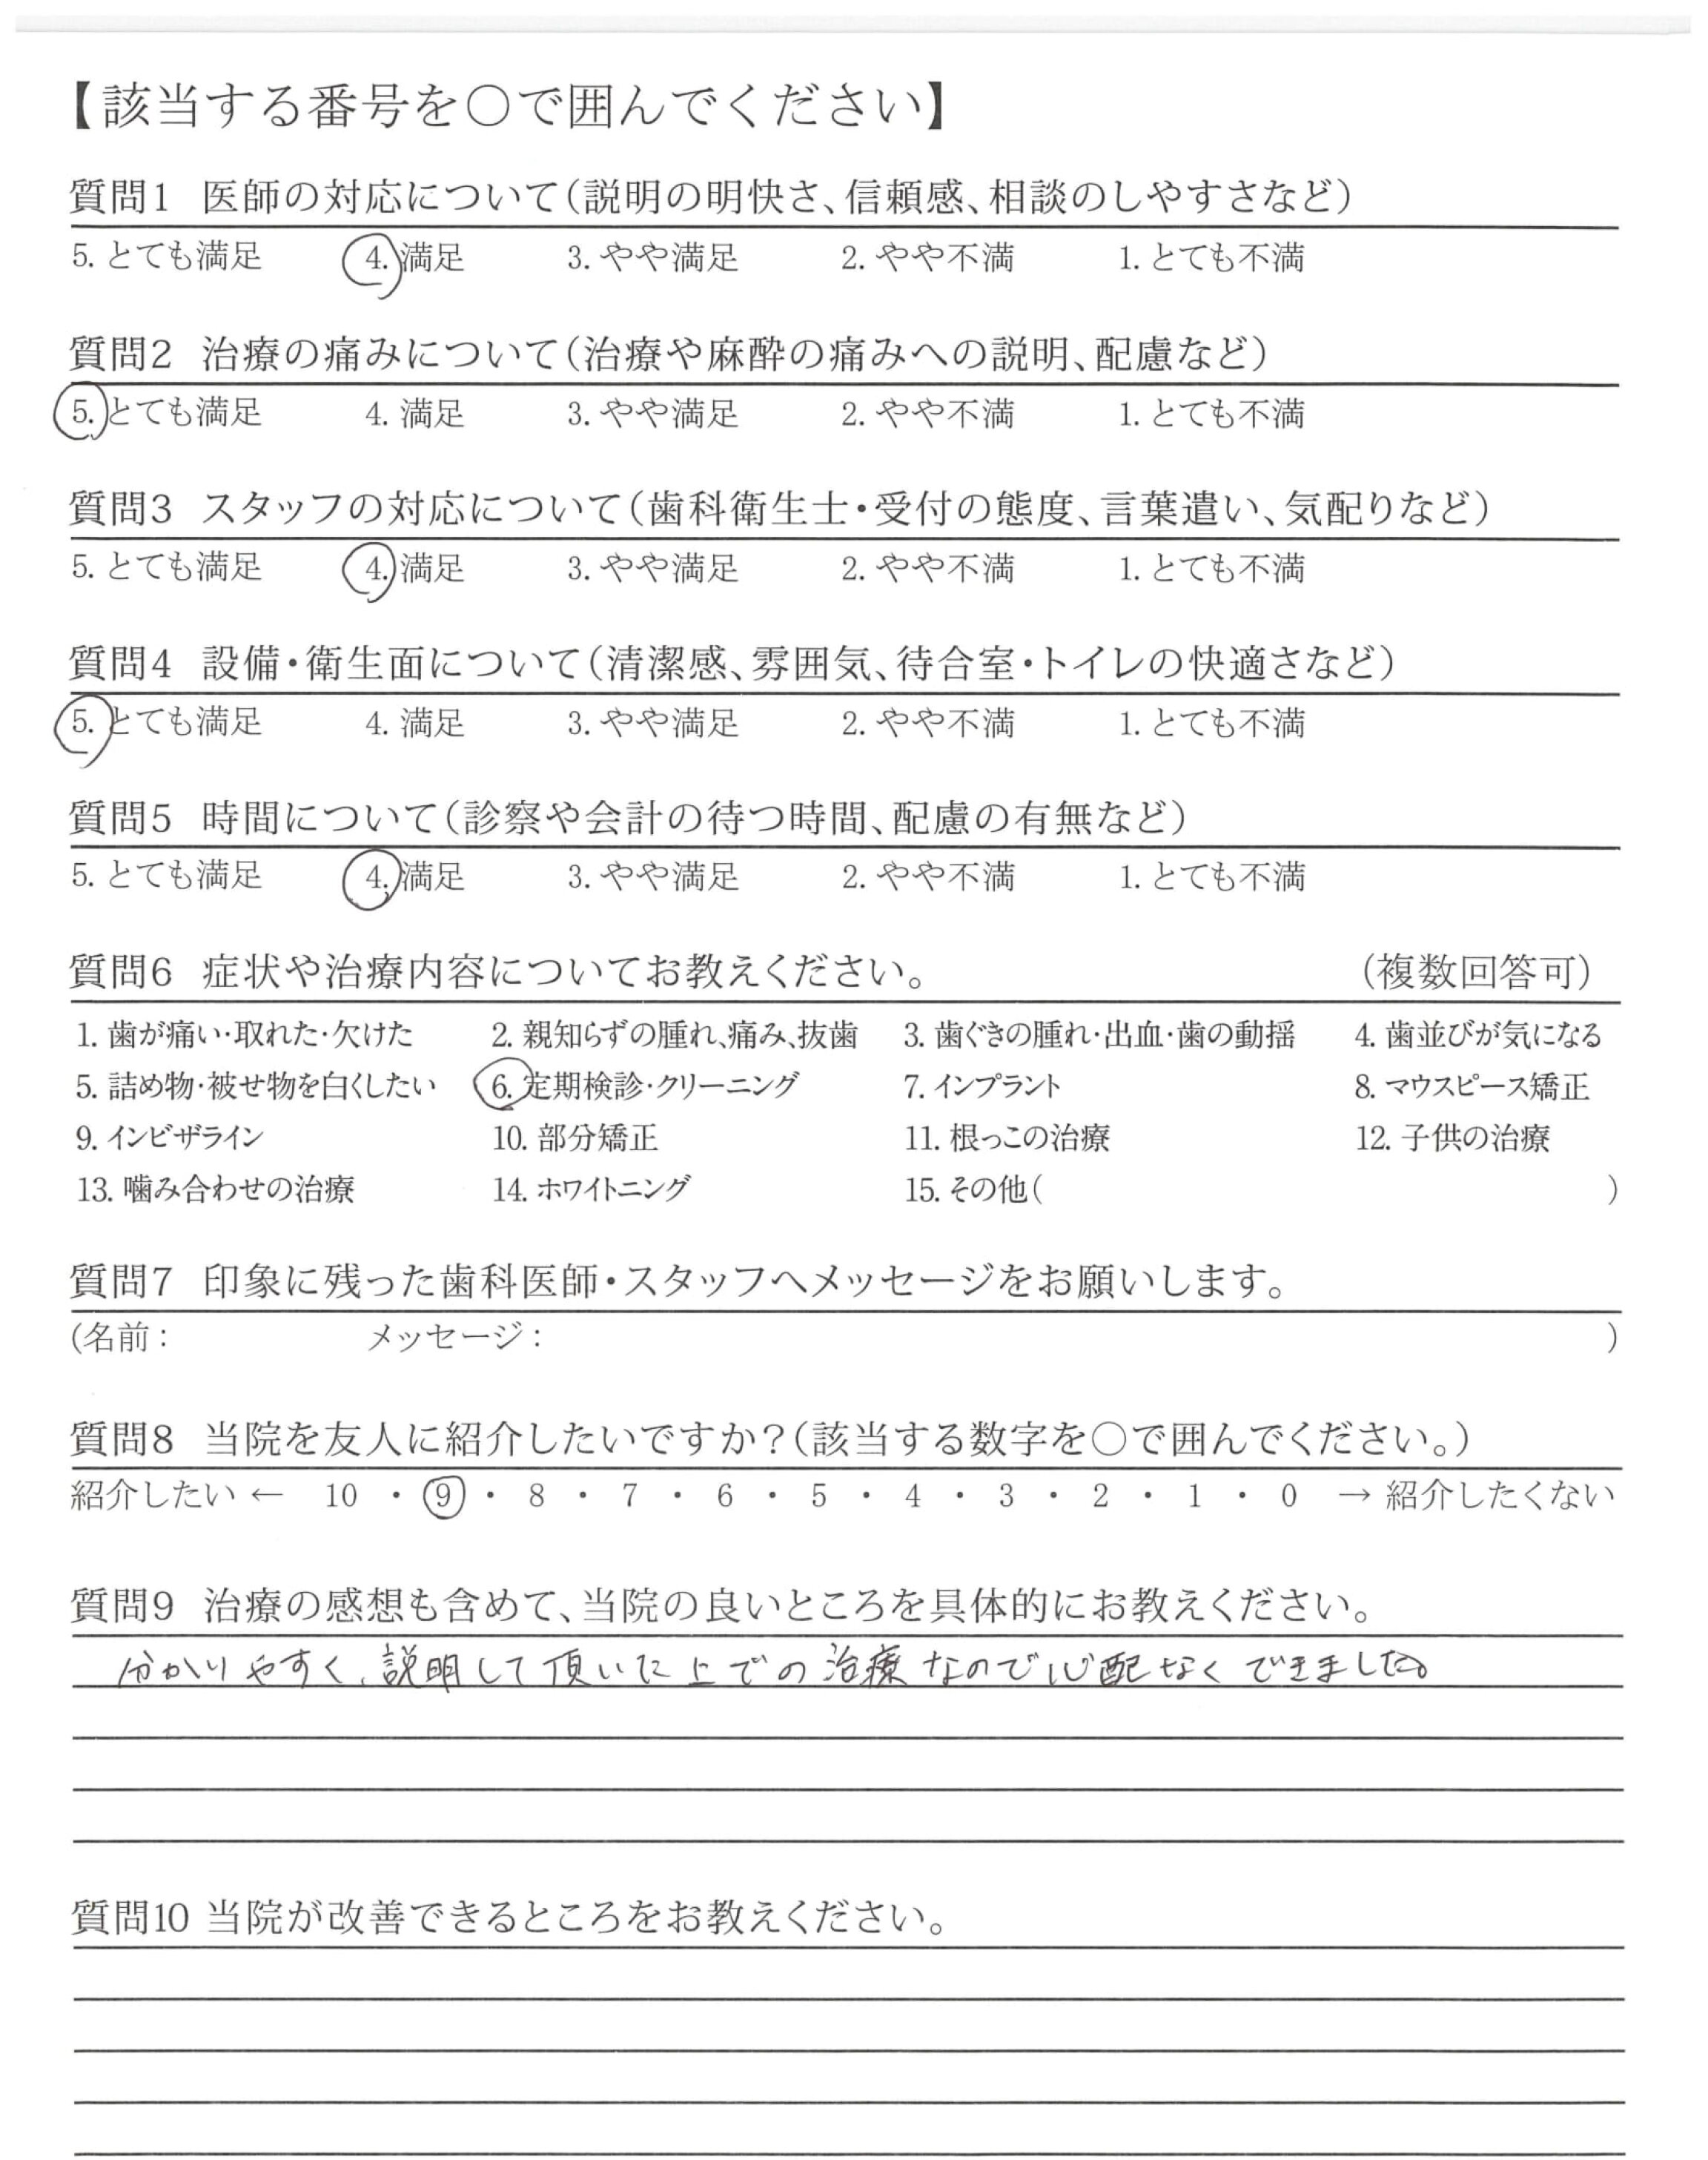 【該当する番号を○で囲んでください】
質問1 医師の対応について(説明の明快さ、信頼感、相談のしやすさなど)
5. とても満足 4. 満足 3. やや満足 2. やや不満 1. とても不満
質問2 治療の痛みについて(治療や麻酔の痛みへの説明、配慮など)
5. とても満足 4. 満足 3. やや満足 2. やや不満 1. とても不満
質問3 スタッフの対応について(歯科衛生士・受付の態度、言葉遣い、気配りなど)
5. とても満足 4. 満足 3. やや満足 2. やや不満 1. とても不満
質問4 設備・衛生面について(清潔感、雰囲気、待合室・トイレの快適さなど)
5. とても満足 4. 満足 3. やや満足 2. やや不満 1. とても不満
質問5 時間について(診察や会計の待つ時間、配慮の有無など)
5. とても満足 4. 満足 3. やや満足 2. やや不満 1. とても不満
質問6 症状や治療内容についてお教えください。 (複数回答可)
1. 歯が痛い・取れた・欠けた 2. 親知らずの腫れ、痛み、抜歯 3. 歯ぐきの腫れ・出血・歯の動揺 4. 歯並びが気になる
5. 詰め物・被せ物を白くしたい 6. 定期検診・クリーニング 7. インプラント 8. マウスピース矯正
9. インビザライン 10. 部分矯正 11. 根っこの治療 12. 子供の治療
13. 噛み合わせの治療 14. ホワイトニング 15. その他( )
質問7 印象に残った歯科医師・スタッフへメッセージをお願いします。
(名前: メッセージ: )
質問8 当院を友人に紹介したいですか?(該当する数字を○で囲んでください。)
紹介したい ← 10 ・ 9 ・ 8 ・ 7 ・ 6 ・ 5 ・ 4 ・ 3 ・ 2 ・ 1 ・ 0 → 紹介したくない
質問9 治療の感想も含めて、当院の良いところを具体的にお教えください。
分かりやすく、説明して頂いた上での治療なので心配なくできました。
質問10 当院が改善できるところをお教えください。